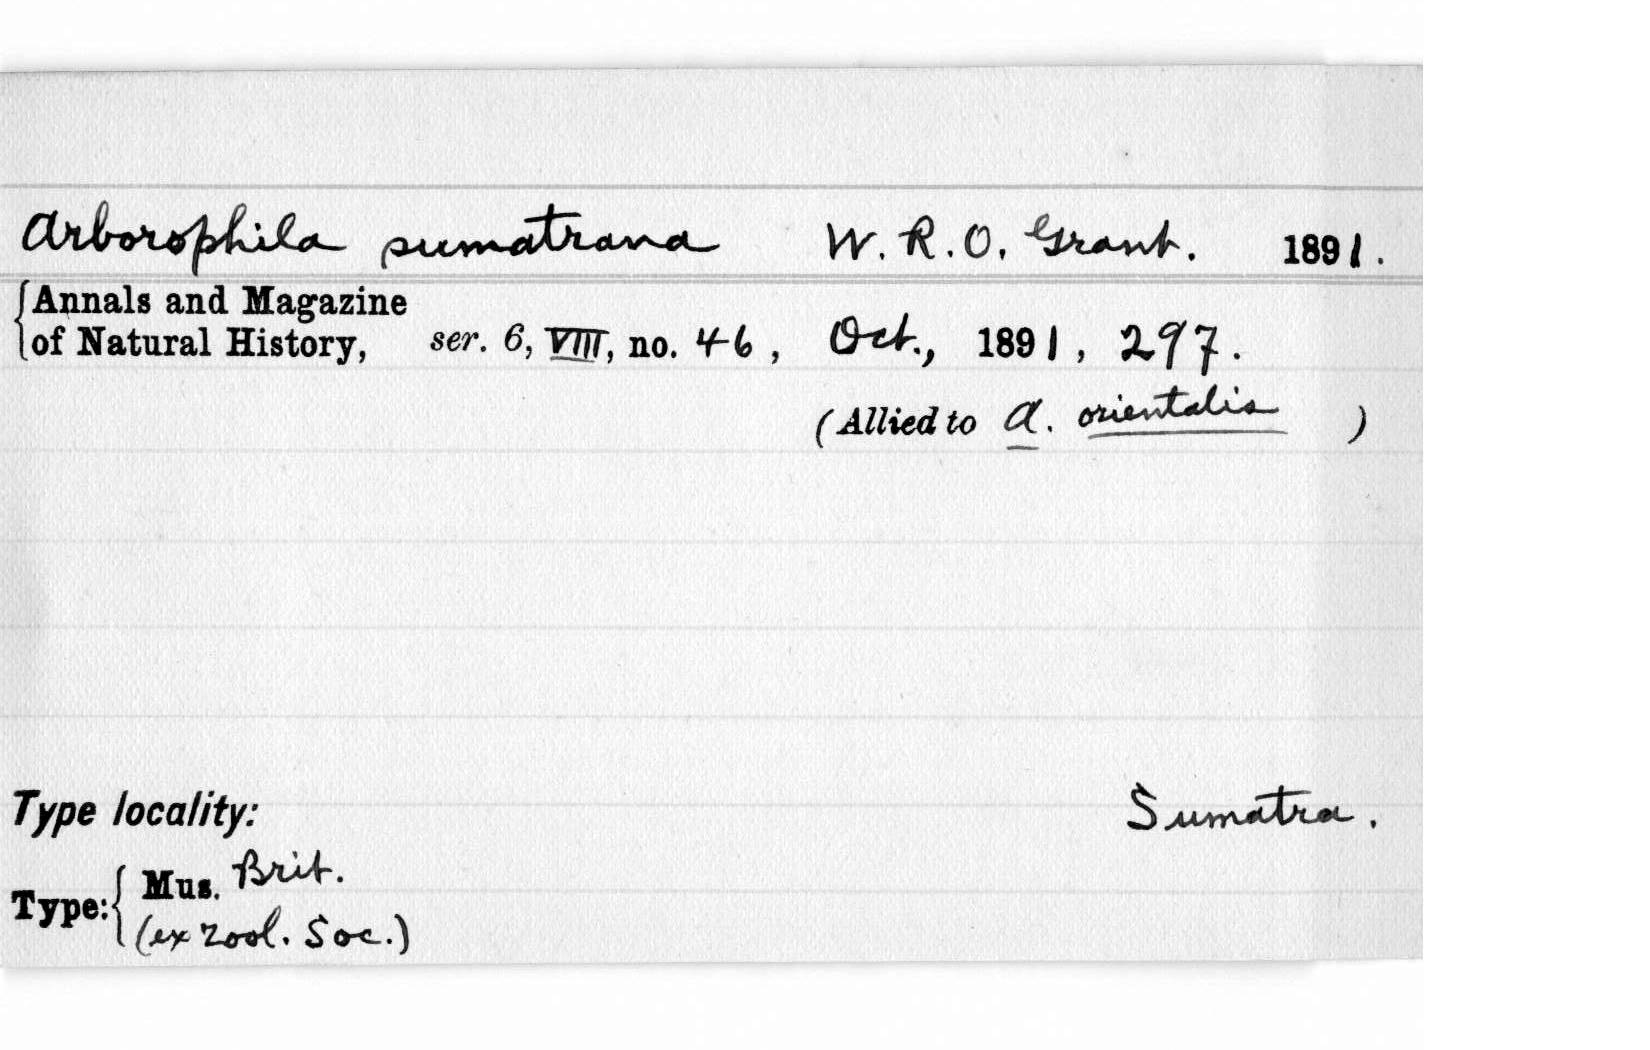 Arborophila sumatrana W. R. O. Grant. 1891.
Annals and Magazine
of Natural History, ser. 6, VIII, no. 46, Oct., 1891, 297.
(Allied to A. orientalis )
Type locality: Sumatra.
Type: Mus. Brit.
(ex Zool. Soc.)